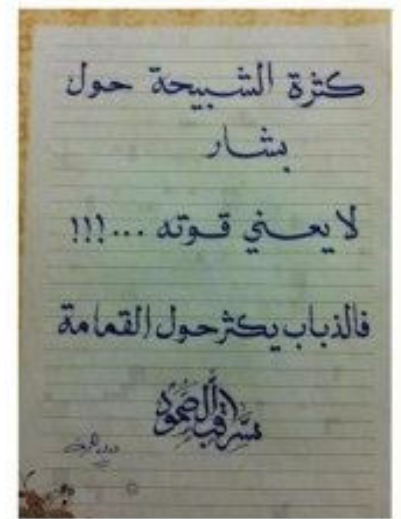 كثرة الشبيحة حول
بشار
لا يعني قوته ...!!!
فالذباب يكثر حول القمامة